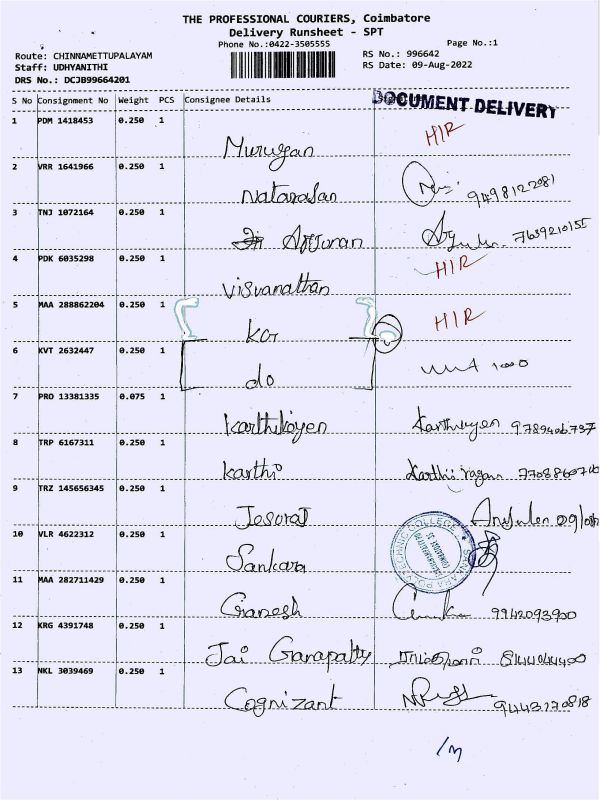 THE PROFESSIONAL COURIERS, Coimbatore
Delivery Runsheet - SPT
Phone No.:0422-3505555
Page No.:1
Route: CHINNAMETTUPALAYAM
Staff: UDHYANITHI
DRS No.: DCJB99664201
RS No.: 996642
RS Date: 09-Aug-2022
S No Consignment No Weight PCS Consignee Details
DOCUMENT DELIVERY
1 PDM 1418453 0.250 1 Murugan HIR
2 VRR 1641966 0.250 1 Natarasan 9498122981
3 TNJ 1072164 0.250 1 Arjunan 7639210155
4 PDK 6035298 0.250 1 Visvanathan HIR
5 MAA 288862204 0.250 1 Kor HIR
6 KVT 2632447 0.250 1 do 1000
7 PRO 13381335 0.075 1 Karthikeyen Karthikeyen 9789406737
8 TRP 6167311 0.250 1 Karthi Karthi
9 TRZ 145656345 0.250 1 Jesuraj
10 VLR 4622312 0.250 1 Sankara
11 MAA 282711429 0.250 1 Ganesh 9942093900
12 KRG 4391748 0.250 1 Jai Ganapathy 8144044400
13 NKL 3039469 0.250 1 Cognizant 9443170818